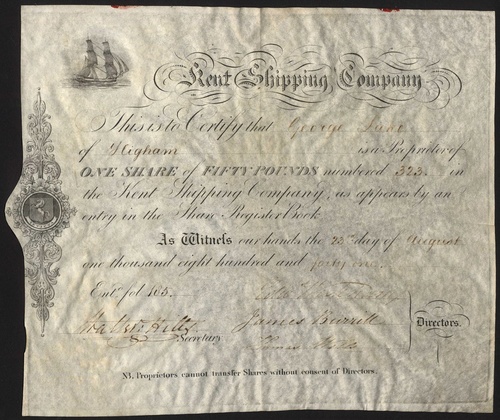 Kent Shipping Company
This is to Certify that George
of Higham is a Proprietor of
ONE SHARE of FIFTY POUNDS numbered 323 in
the Kent Shipping Company, as appears by an
entry in the Share Register Book
As Witness our hands the 23rd day of August
one thousand eight hundred and forty one
Entd. fol 165.
James Burrill
Directors.
Secretary Thomas
NB. Proprietors cannot transfer Shares without consent of Directors.